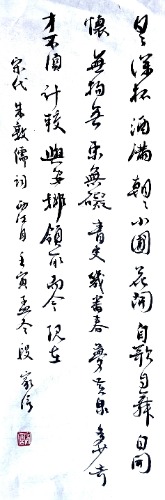 日日深杯酒滿朝朝小圃花開自歌自舞自開
懷無拘無束無礙青史幾番春夢黃泉多少奇
才不須計較與安排領取而今現在
宋代朱敦儒詞西江月壬寅孟冬段家